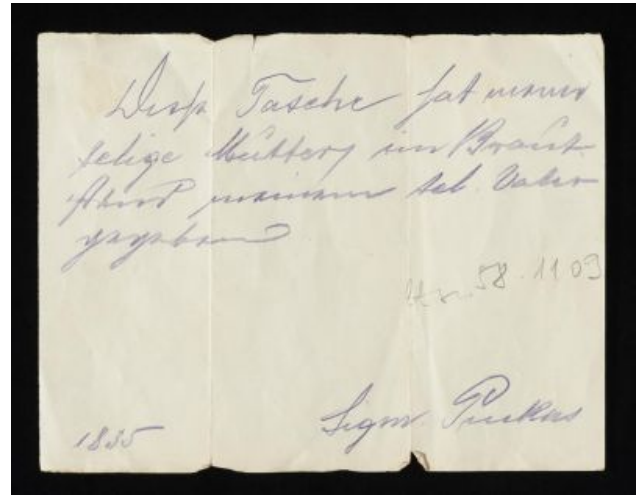 Diese Tasche hat meine
selige Mutter im Braut-
stand meinem sel. Vater
gegeben
58.1109
1835
Sigm. Pinkus